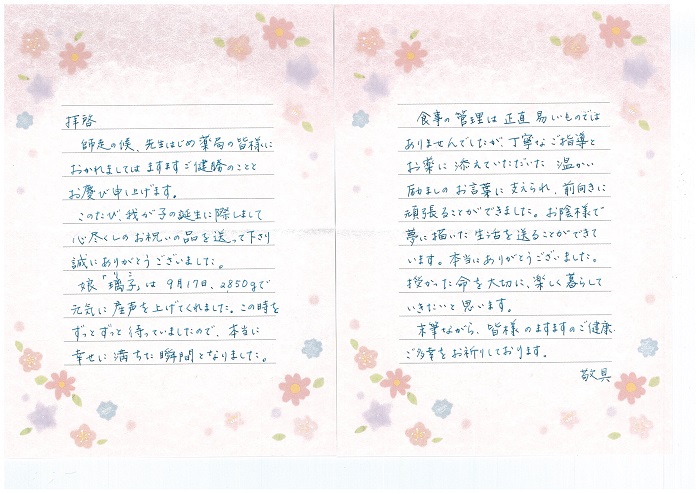 拝啓
師走の候、先生はじめ薬局の皆様に
おかれましてはますますご健勝のことと
お慶び申し上げます。
このたび、我が子の誕生に際しまして
心尽くしのお祝いの品を送って下さり
誠にありがとうございました。
娘「璃子」は 9月17日、2,850gで
元気に産声を上げてくれました。この時を
ずっとずっと待っていましたので、本当に
幸せに満ちた瞬間となりました。
食事の管理は正直易いものでは
ありませんでしたが、丁寧なご指導と
お薬に添えていただいた 温かい
励ましのお言葉に支えられ、前向きに
頑張ることができました。お陰様で
夢に描いた生活を送ることができて
います。本当にありがとうございました。
授かった命を大切に、楽しく暮らして
いきたいと思います。
末筆ながら、皆様のますますのご健康
ご多幸をお祈りしております。
敬具